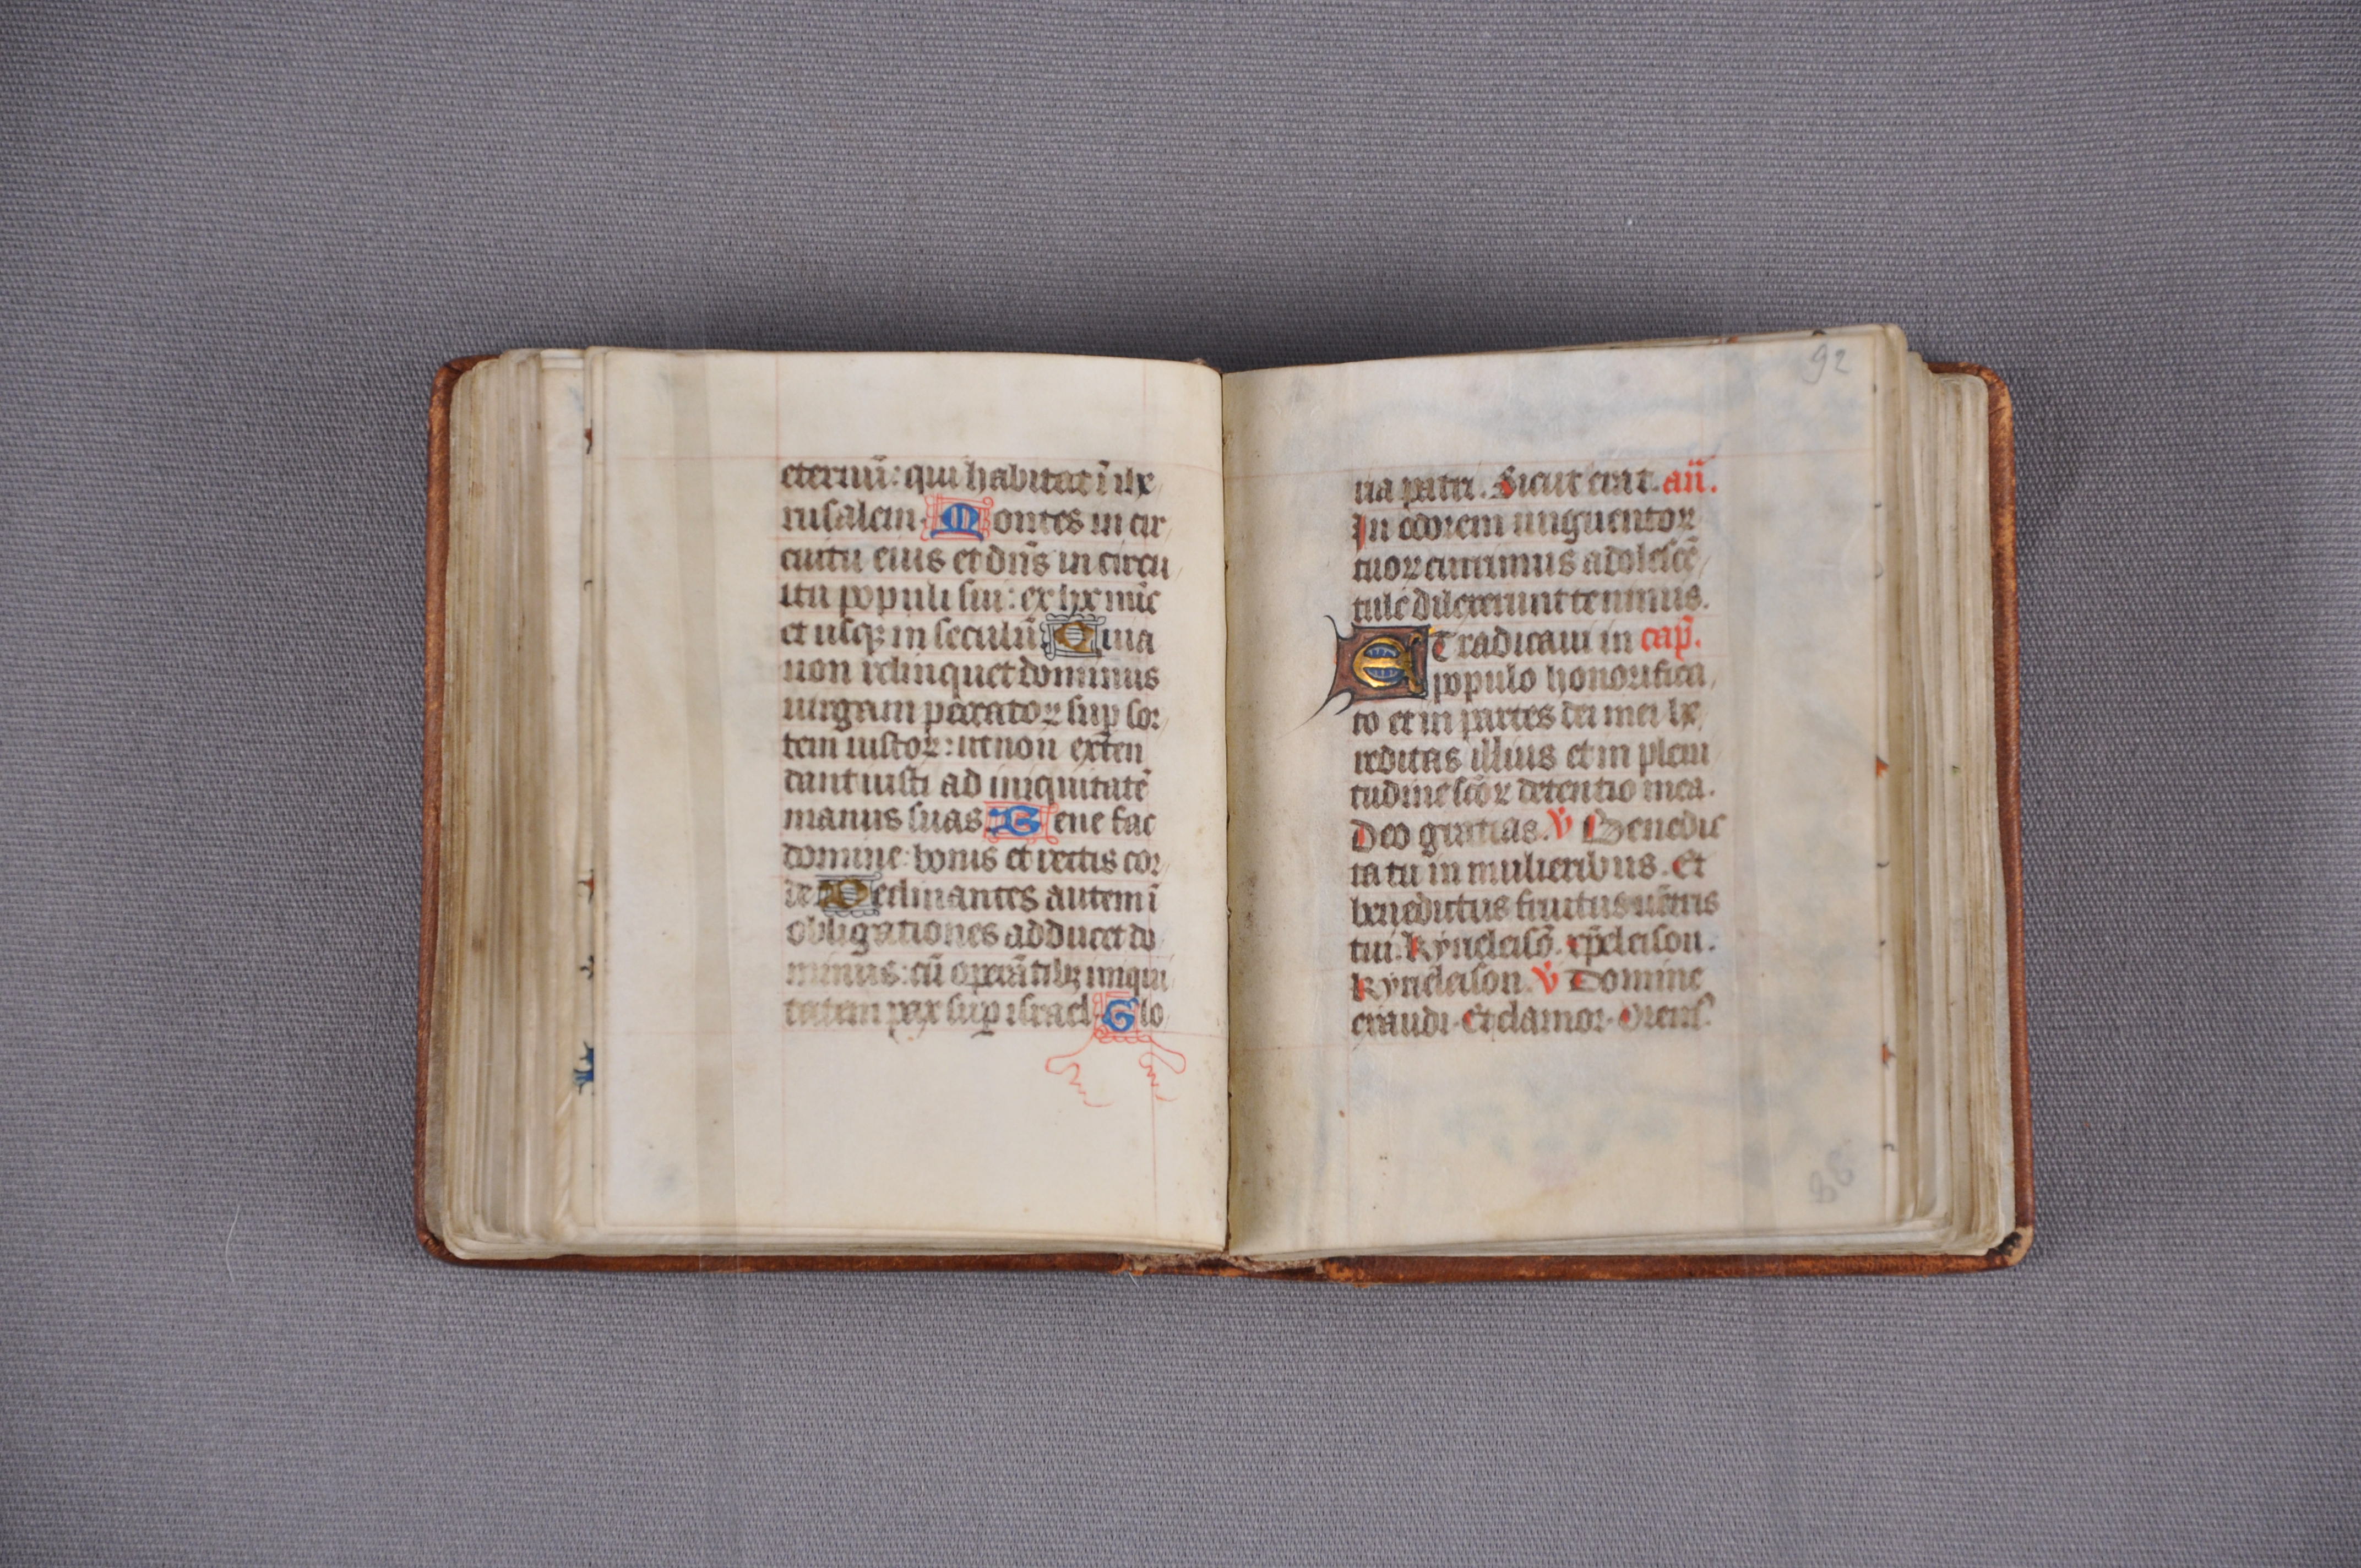 eternū: qui habitat ī ihe
rusalem. Montes in cir
cuitu eius et dn̄s in circu
itu populi sui: ex hoc nūc
et usqꝫ in seculū. Quia
non relinquet dominus
uirgam peccatoꝝ sup sor
tem iustoꝝ: ut non exten
dant iusti ad iniquitatē
manus suas. Bene fac
domine: bonis et rectis cor
de. Declinantes autem ī
obligationes adducet do
minus: cū operātibꝫ iniqui
tatem pax sup israel. Glo
92
ria patri. Sicut erat. an̄.
In odorem unguentoꝝ
tuoꝝ currimus adolescē
tule dilexerunt te nimis.
ET radicaui in cap̄.
populo honorifica
to et in partes dei mei he
reditas illius et in pleni
tudine sc̄oꝝ detentio mea.
Deo gratias. v̄ Benedic
ta tu in mulieribus. Et
benedictus fructus uētris
tui. Kyrieleisō. xp̄eleison.
Kyrieleison. v̄ Domine
exaudi. Et clamor. Orem̄.